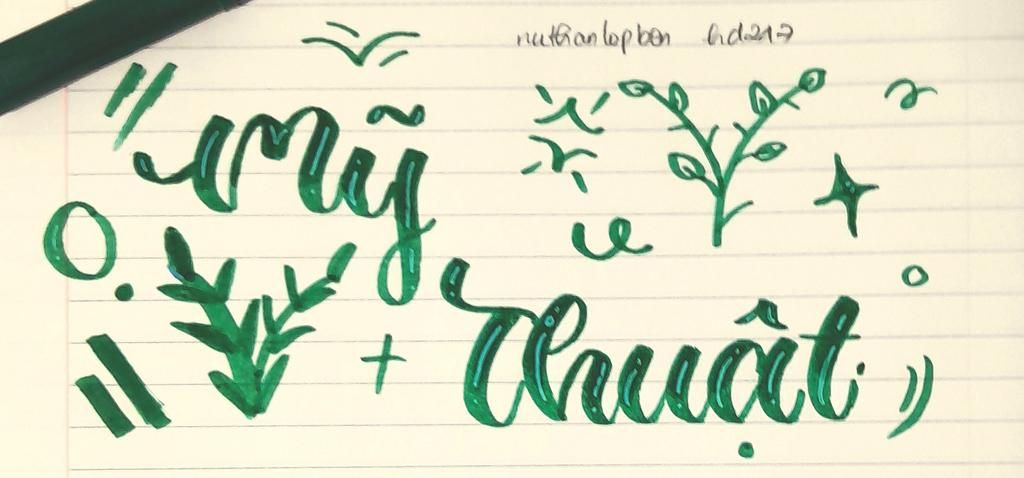 nuthanlopbon hd217
Mỹ
Thuật